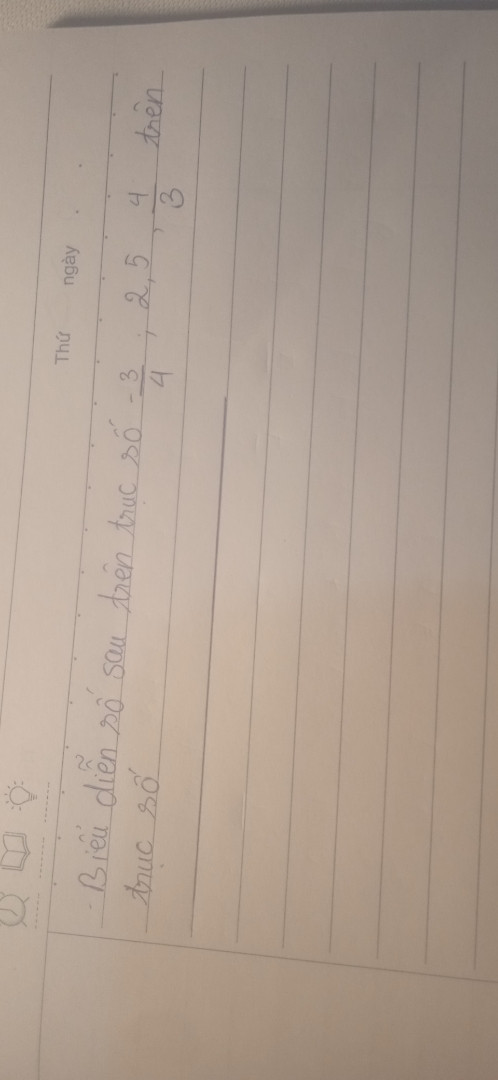 Thứ ngày
- Biểu diễn số sau trên trục số -3/4 ; 2,5 , 4/3 trên
trục số